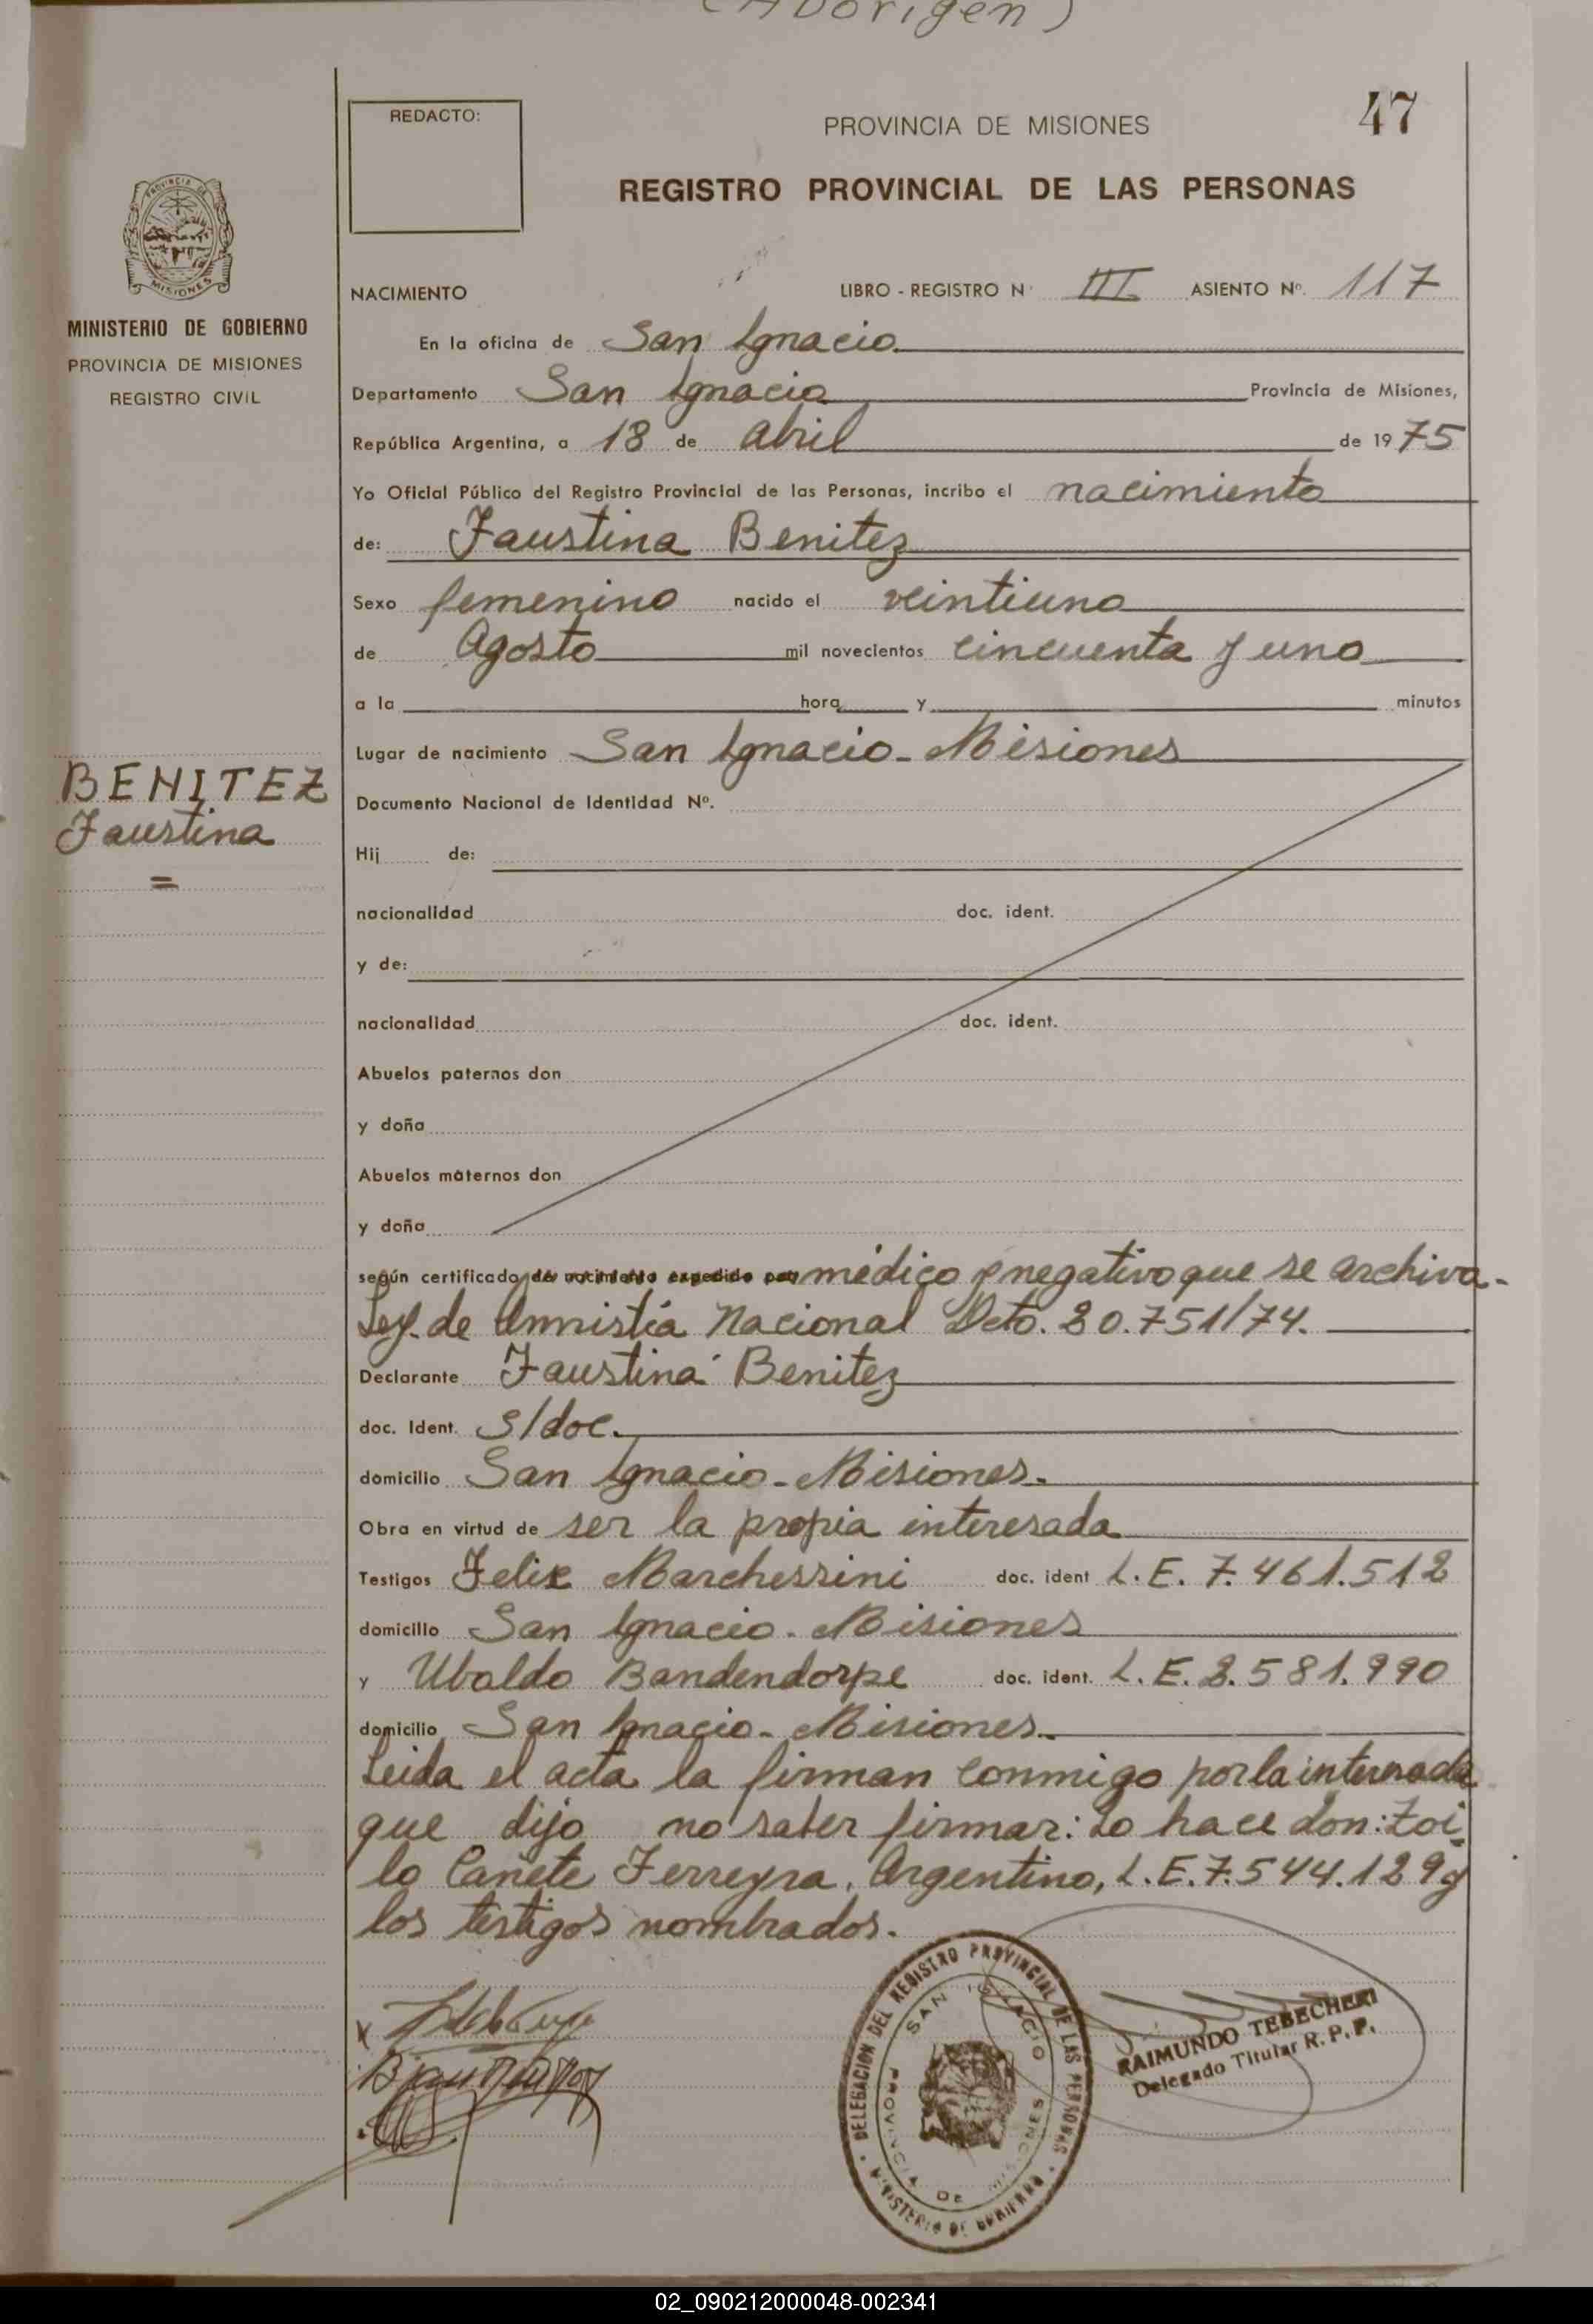 (Aborigen)
47
REDACTO:
PROVINCIA DE MISIONES
REGISTRO PROVINCIAL DE LAS PERSONAS
PROVINCIA DE
MISIONES
MINISTERIO DE GOBIERNO
PROVINCIA DE MISIONES
REGISTRO CIVIL
NACIMIENTO LIBRO - REGISTRO N° III ASIENTO Nº. 117
En la oficina de San Ignacio
Departamento San Ignacio Provincia de Misiones,
República Argentina, a 18 de Abril de 1975
Yo Oficial Público del Registro Provincial de las Personas, incribo el nacimiento
de: Faustina Benitez
Sexo femenino nacido el veintiuno
de Agosto mil novecientos cincuenta y uno
a la hora y minutos
Lugar de nacimiento San Ignacio - Misiones
BENITEZ
Faustina
=
Documento Nacional de Identidad Nº.
Hij de:
nacionalidad doc. ident.
y de:
nacionalidad doc. ident.
Abuelos paternos don
y doña
Abuelos maternos don
y doña
según certificado de nacimiento expedido por médico y negativo que se archiva-
Ley. de Amnistía Nacional Dcto. 20.751/74.
Declarante Faustina Benitez
doc. Ident. S/doc.
domicilio San Ignacio - Misiones.
Obra en virtud de ser la propia interesada
Testigos Felix Marchessini doc. ident L.E. 7.461.512
domicilio San Ignacio - Misiones
y Ubaldo Bandendorpe doc. ident. L.E. 2.581.990
domicilio San Ignacio - Misiones.
Leida el acta la firman conmigo por la interesada
que dijo no saber firmar: Lo hace don: Zoi-
lo Cañete Ferreyra, Argentino, L.E. 7.544.129 y
los testigos nombrados.
DELEGACION DEL REGISTRO PROVINCIAL DE LAS PERSONAS
SAN IGNACIO
PROVINCIA DE MISIONES
MINISTERIO DE GOBIERNO
RAIMUNDO TEBECHERI
Delegado Titular R. P. P.
02_090212000048-002341